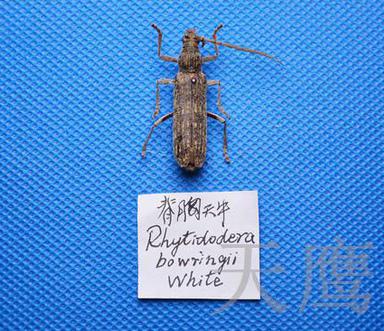 脊胸天牛
Rhytidodera
bowringii
White
天鹰